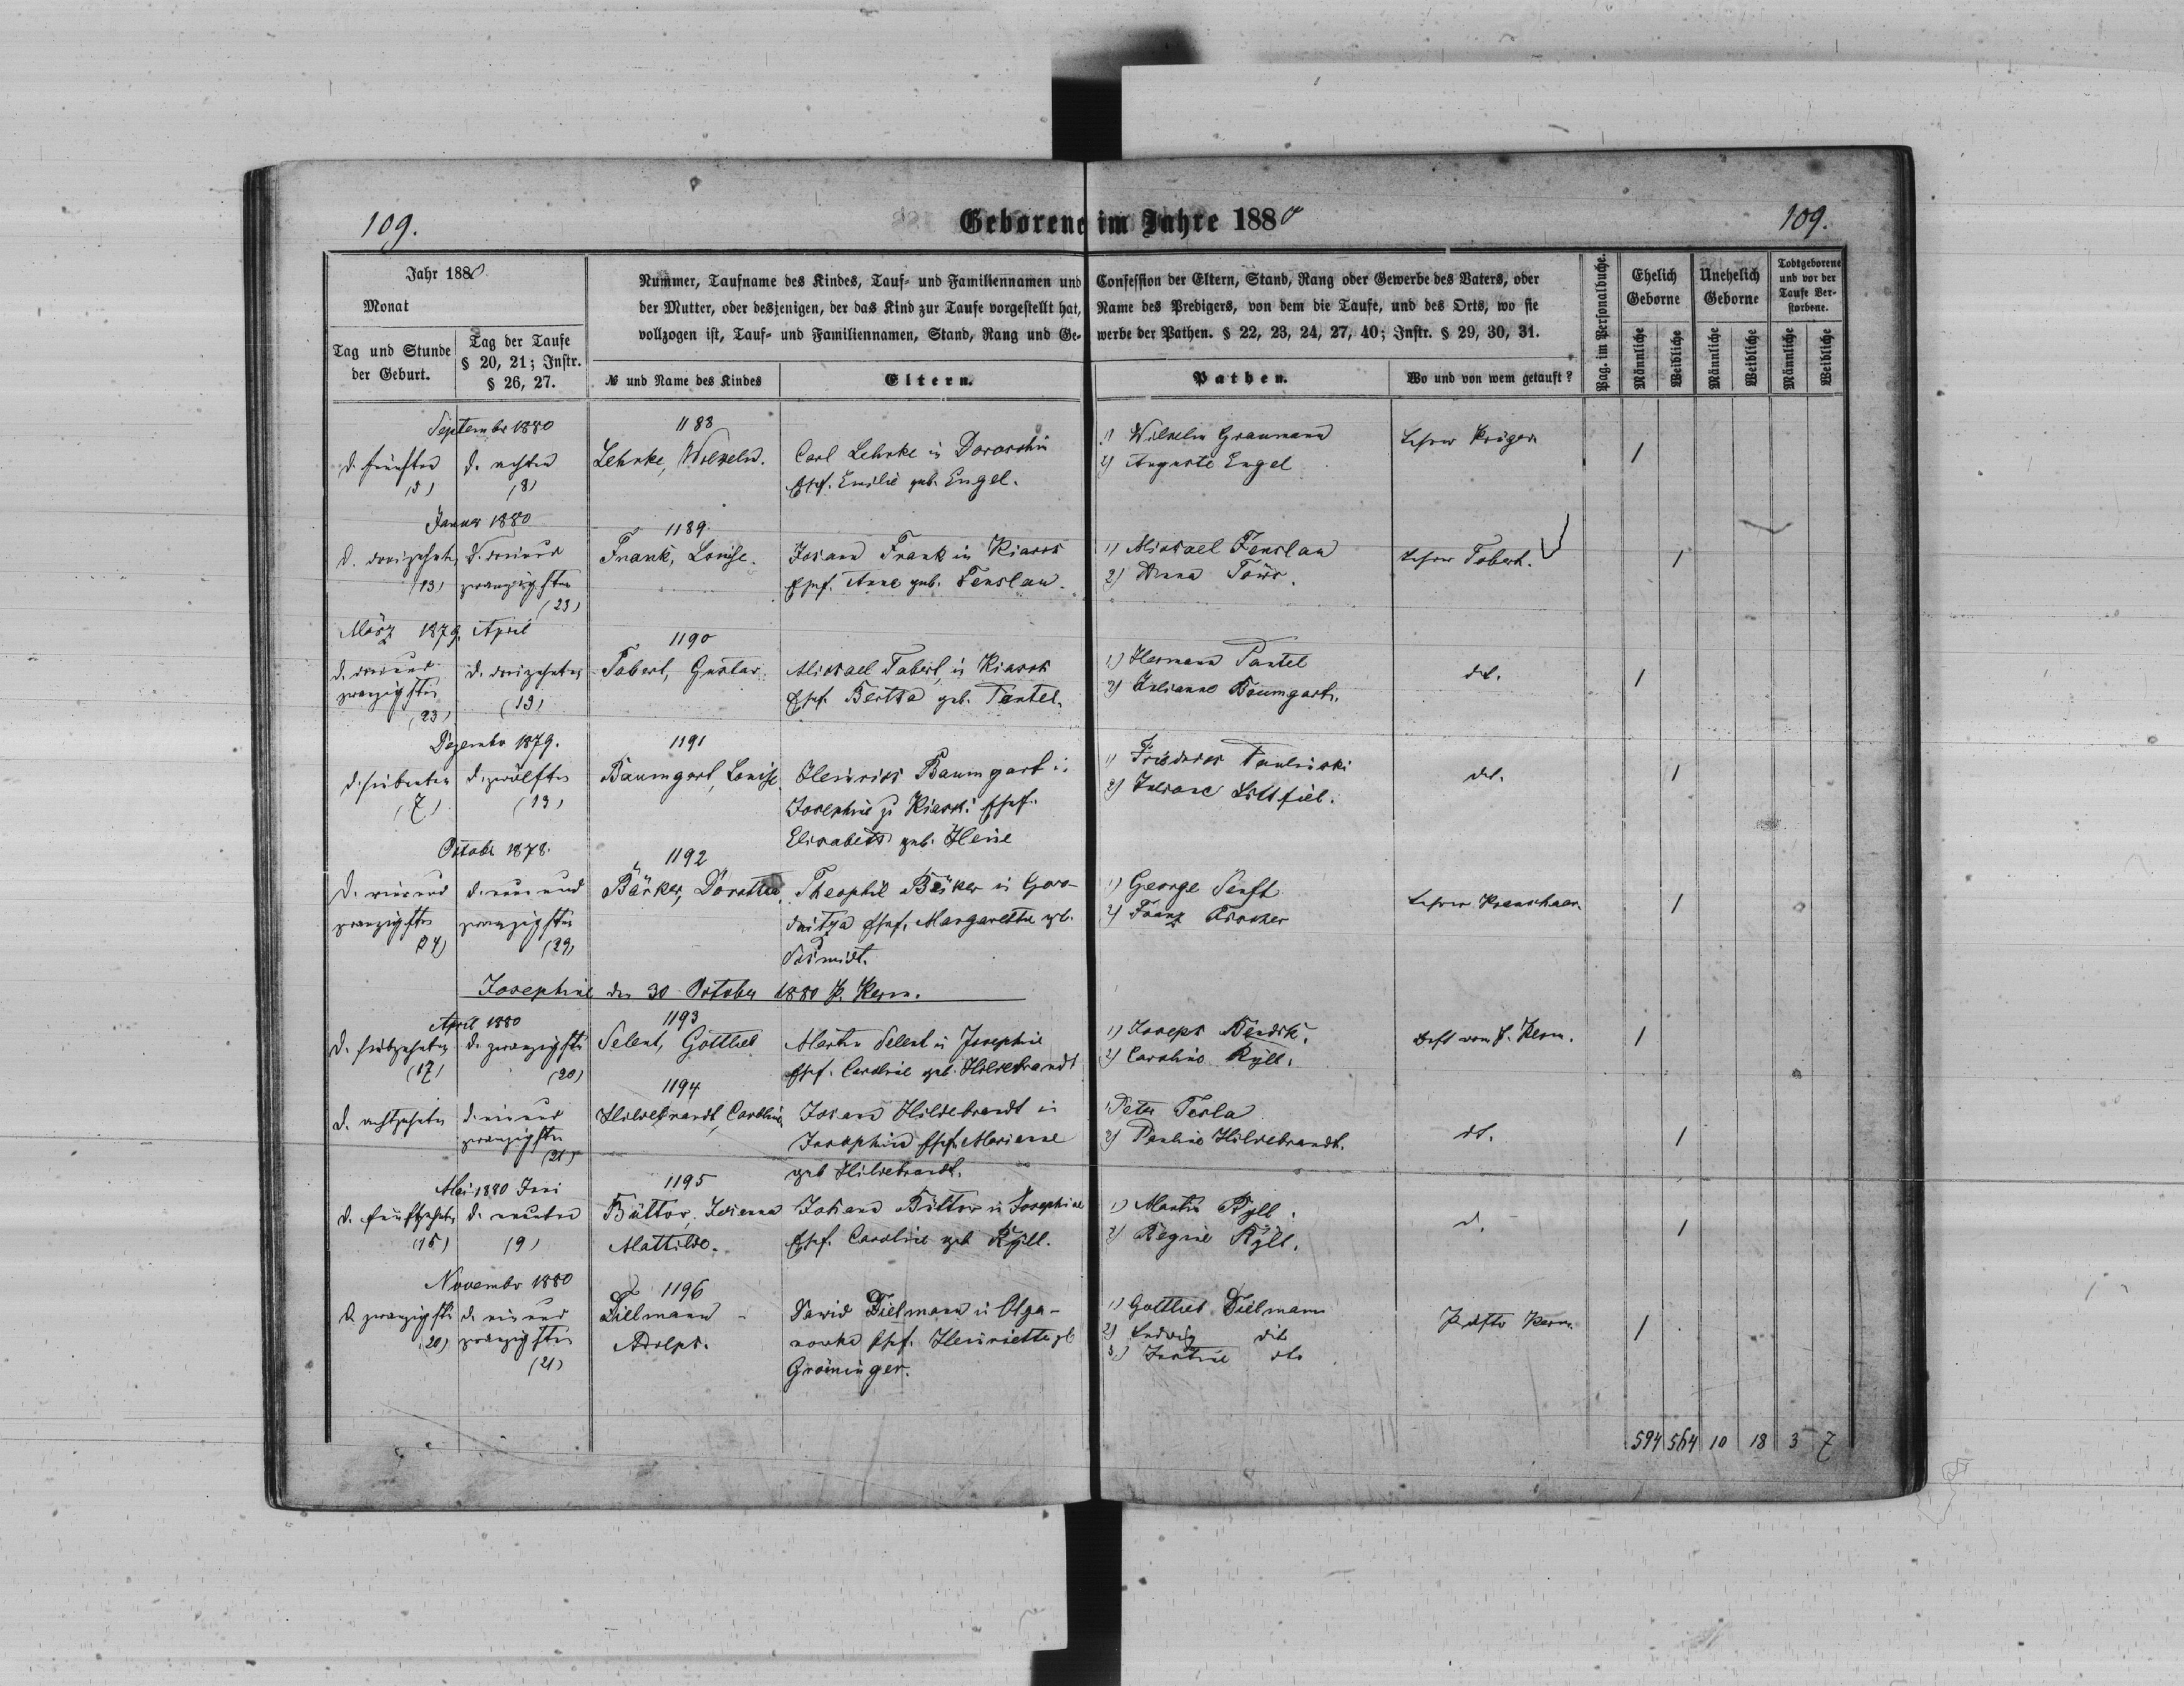 109.
Geborene im Jahre 1880
109.
Jahr 1880
Monat
Tag und Stunde der Geburt.
Tag der Taufe § 20, 21; Instr. § 26, 27.
Nummer, Taufname des Kindes, Tauf- und Familiennamen und Confession der Eltern, Stand, Rang oder Gewerbe des Vaters, oder
der Mutter, oder desjenigen, der das Kind zur Taufe vorgestellt hat, Name des Predigers, von dem die Taufe, und des Orts, wo sie
vollzogen ist, Tauf- und Familiennamen, Stand, Rang und Gewerbe der Pathen. § 22, 23, 24, 27, 40; Instr. § 29, 30, 31.
№ und Name des Kindes
Eltern.
Pathen.
Wo und von wem getauft?
Pag. im Personalbuche.
Ehelich Geborne
Unehelich Geborne
Todtgeborene und vor der Taufe Verstorbene.
Männliche Weibliche Männliche Weibliche Männliche Weibliche
September 1880 1188
d. fünften d. achten Lehnke, Wilhelm. Carl Lehnke in Dorosin 1) Wilhelm Graumann Lehrer Krüger 1
(5) (8) Ehef. Emilie geb. Engel. 2) Auguste Engel
Januar 1880 1189.
d. dreizehnten d. dreiund Frank, Louise. Johann Frank in Kiarsk 1) Michael Fenslau Lehrer Tobert. 1
(13) zwanzigsten Ehef. Anna geb. Fenslau. 2) Anna
(23)
März 1879. April 1190
d. dreiund d. dreizehnten Tabert, Gustav. Michael Tabert, in Kiarsk 1) Hermann Pantel dt. 1
zwanzigsten (23) (13) Ehef. Bertha geb. Pantel. 2) Julianne Baumgart.
Dezember 1879. 1191
d. siebenten d. zwölften Baumgart, Louise. Heinrich Baumgart in 1) Friedrich Paulinski dt. 1
(7) (12) Josephine zu Kiarsk. Ehef. 2) Juliane
Elisabeth geb. Heine
October 1878. 1192
d. vierund d. neunund Bäcker, Dorothea. Theophil Bäcker in Goro- 1) George Senft Lehrer 1
zwanzigsten zwanzigsten dnitza Ehef. Margarethe geb. 2) Franz
(24) (29) Schmidt.
Josephine den 30 October 1880 P. Kern.
April 1880 1193
d. siebzehnten d. zwanzigsten Selent, Gottlieb Martin Selent in Josephine 1) Joseph Bendik. Past vom P. Kern. 1
(17) (20) Ehef. Caroline geb. Hildebrandt 2) Caroline Ryll.
1194
d. achtzehnten d. einund Hildebrandt, Caroline Johann Hildebrandt in 1) Peter Tesla dt. 1
zwanzigsten Josephine Ehef. Marianne 2) Pauline Hildebrandt.
(21) geb Hildebrandt.
Mai 1880 Juni 1195
d. fünfzehnten d. neunten Büttow, Johanna Johann Büttow in Josephine 1) Martin Ryll. d. 1
(15) (9) Mathilde. Ehef. Caroline geb Ryll. 2) Regine Ryll.
November 1880 1196
d. zwanzigsten d. einund Dielmann Dawid Dielmann in Olga- 1) Gottlieb Dielmann Pastor Kern 1
(20) zwanzigsten Adolph. nowka Ehef. Henriette geb 2) Ludwig dito
(21) Gröninger. 3) Justine dto
594 564 10 18 3 7